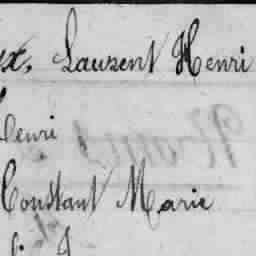 ex, Laurent Henri
Henri
Constant Marie